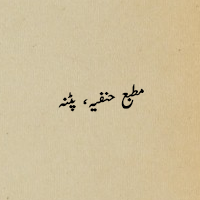 مطبع حنفیہ، پٹنہ